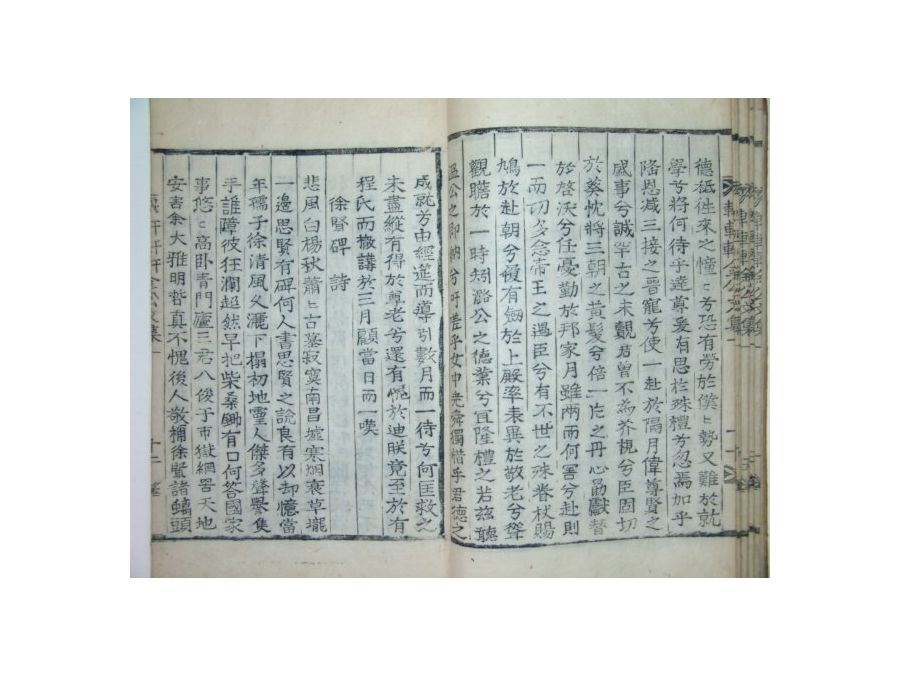 德祗徃來之憧〻兮恐有勞於僕〻勢又難於就
學兮將何待乎達尊爰有思於殊禮兮忽焉加乎
隆恩减三接之晋寵兮使一赴於隔月偉尊賢之
盛事兮誠罕古之未覩君曾不爲芥視兮臣固切
於葵忱將三朝之黃髮兮倍一片之丹心勗獻替
於啓沃兮任憂勤於邦家月雖兩而何害兮赴則
一而切多念帝王之遇臣兮有不世之殊眷杖賜
鳩於赴朝兮履有劒於上殿率表異於敬老兮聳
觀瞻於一時矧潞公之德業兮宜隆禮之若玆聽
溫公之卽納兮吁嗟乎女中堯舜獨惜乎君德之
成就兮由經筵而導引數月而一待兮何匡救之
未盡縱有得於尊老兮還有愧於迪朕竟至於有
程氏而撤講於三月顧當日而一嘆
徐賢碑 詩
悲風白楊秋蕭〻古墓寂寞南昌墟寒烟衰草壠
一邊思賢有碑何人書思賢之說良有以却憶當
年孺子徐淸風又灑下榻初地靈人傑多聲譽隻
手誰障彼狂瀾超然早把柴桑鋤有口何答國家
事悠〻高卧靑門廬三君八俊于市獄網罟天地
安害余大雅明哲眞不愧後人敬襧徐賢諸螭頭